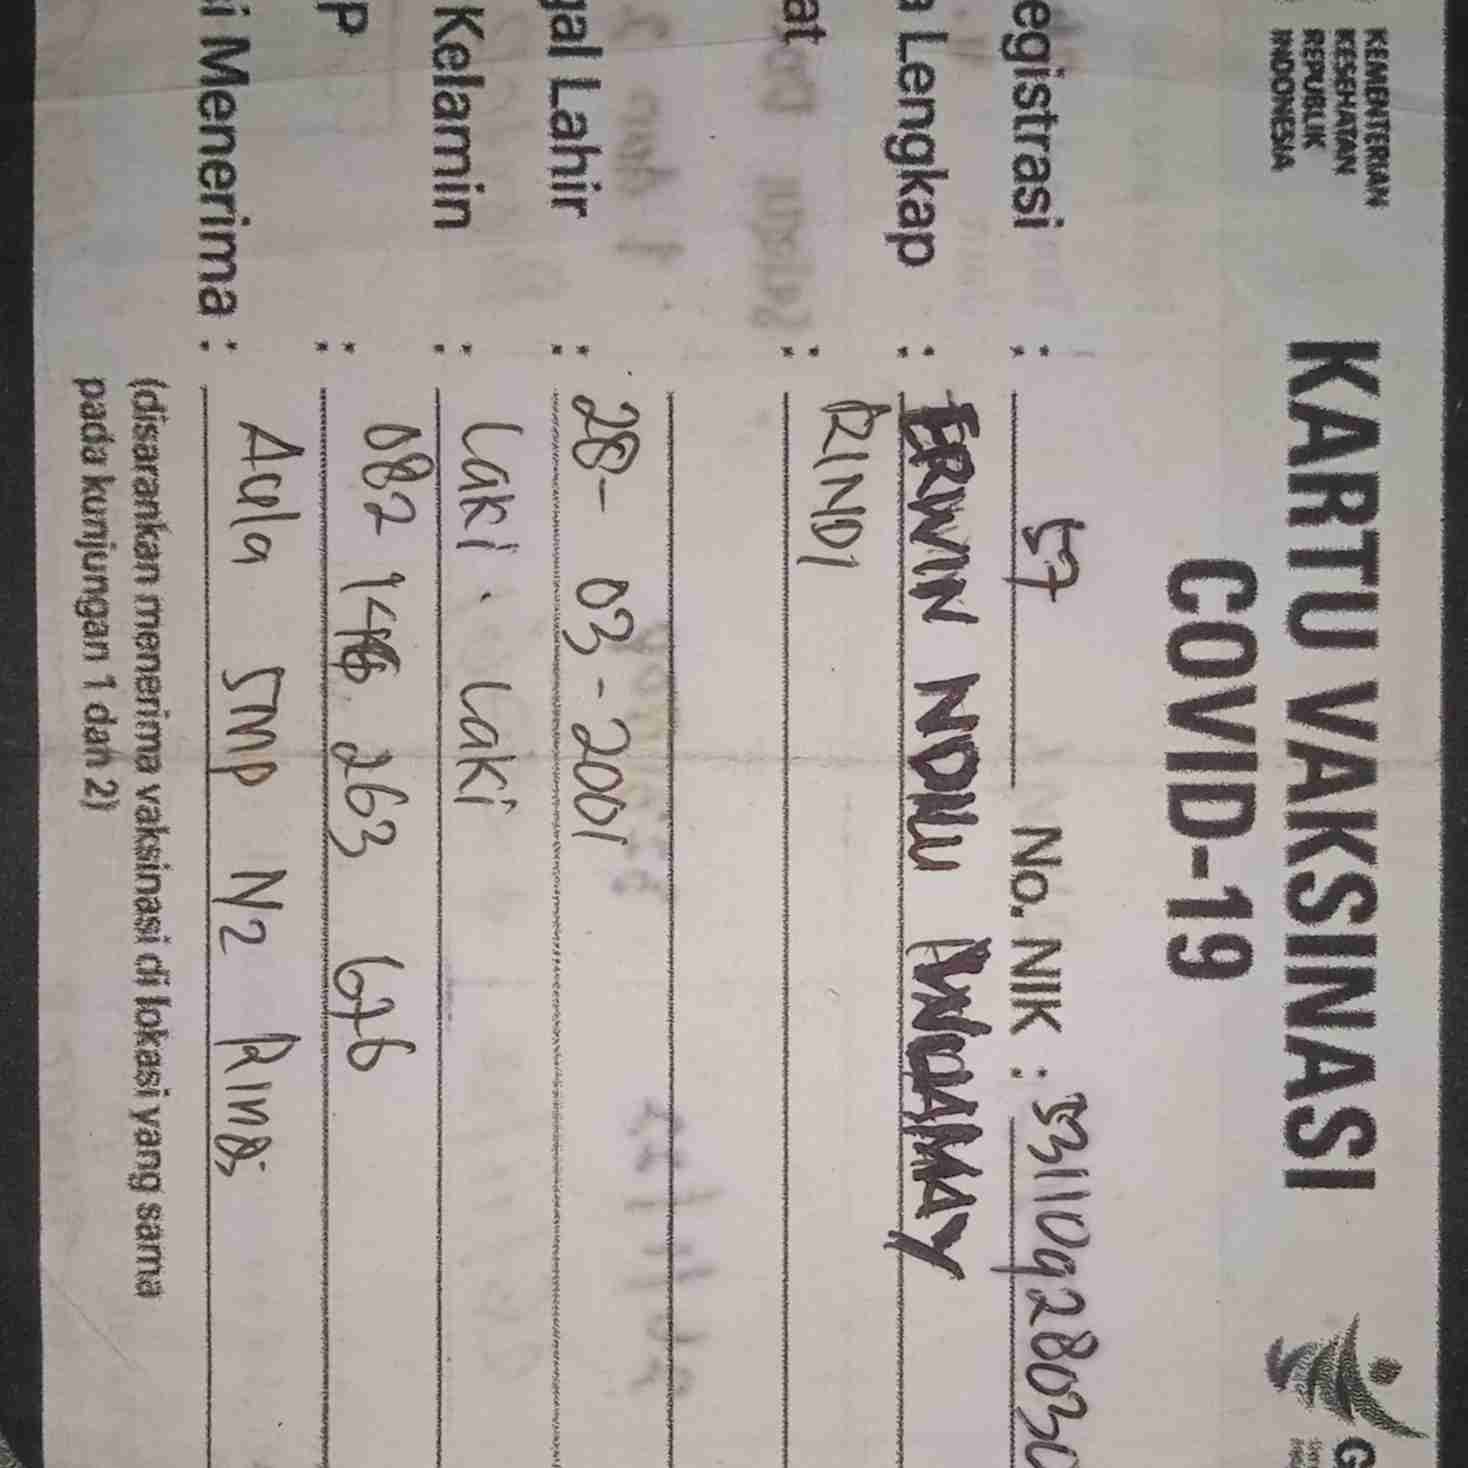 KEMENTERIAN
KESEHATAN
REPUBLIK
INDONESIA
KARTU VAKSINASI
COVID-19
G
egistrasi : 57 No. NIK : 53110928030
a Lengkap : ERWIN NDILU
at : RINDI
gal Lahir : 28-03-2001
Kelamin : Laki. Laki
P : 082 146 263 676
si Menerima : Aula SMP N2 Rindi
(disarankan menerima vaksinasi di lokasi yang sama
pada kunjungan 1 dan 2)